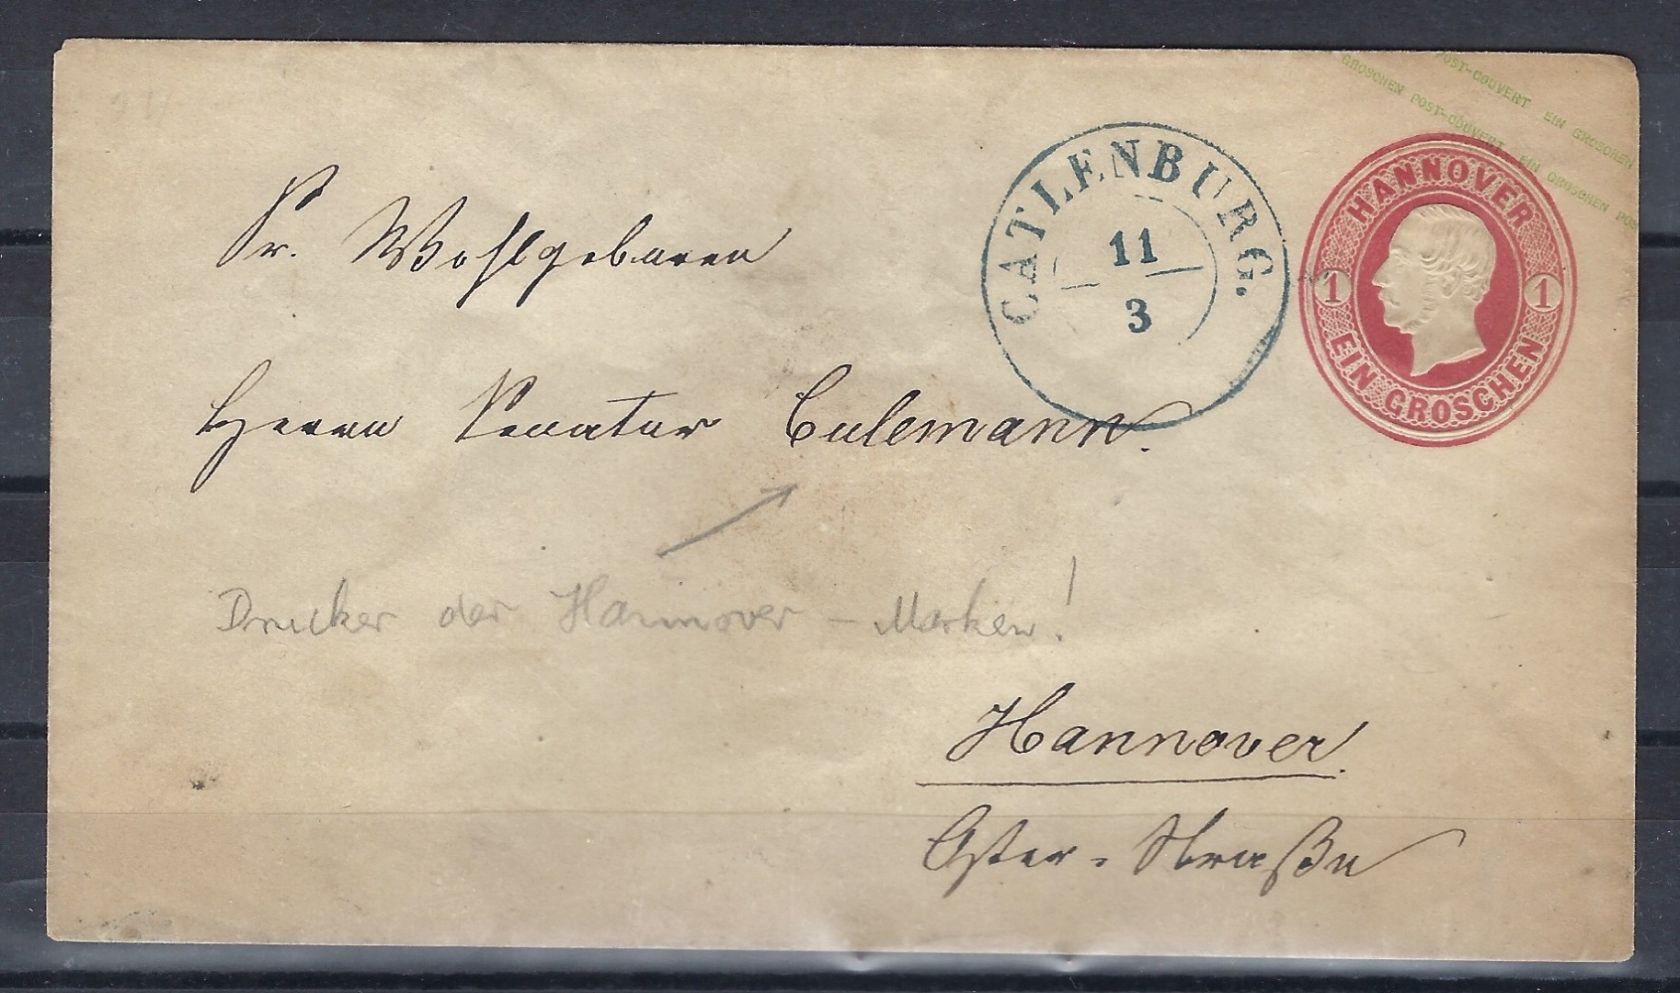 POST-COUVERT EIN GROSCHEN
GROSCHEN POST-COUVERT EIN GROSCHEN POS
HANNOVER
1 1
EIN GROSCHEN
CATLENBURG.
11
3
Sr. Wohlgeboren
Herrn Senator Culemann.
Drucker der Hannover – Marken!
Hannover.
Oster-Straße